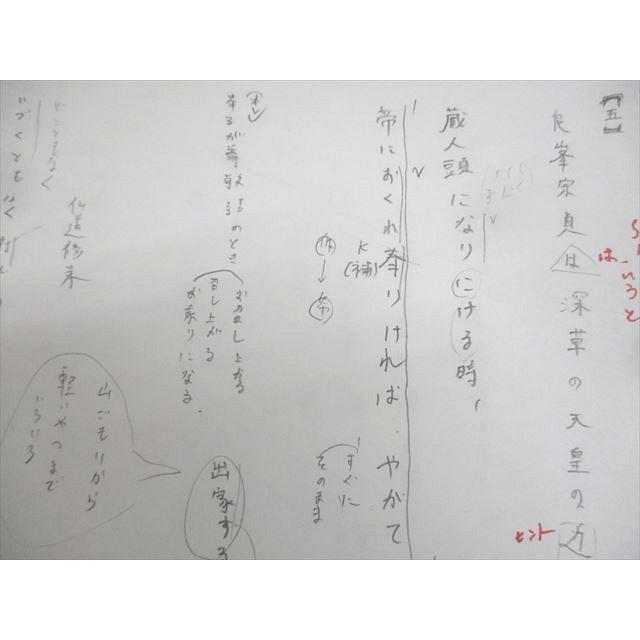 【五】
良峯宗貞は深草の天皇の
は、いろと
ヒント
蔵人頭になりにける時、
帝におくれ奉りければ、やがて
K(補)
体→帝
すぐに
そのまま
奉るが尊敬語のとき
お召し上がる
召し上がる
お乗りになる。
出家する
山ごもりから
軽いやつまで
いろいろ
仏道修業
どこともなく
いづくとも なく